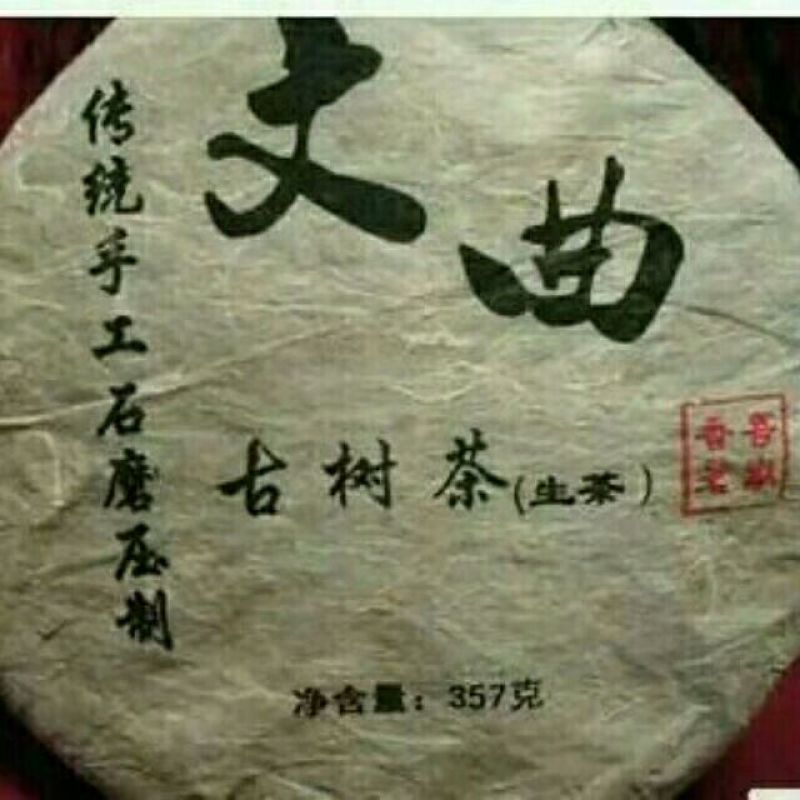 丈曲
传统手工石磨压制
古树茶(生茶)
净含量：357克